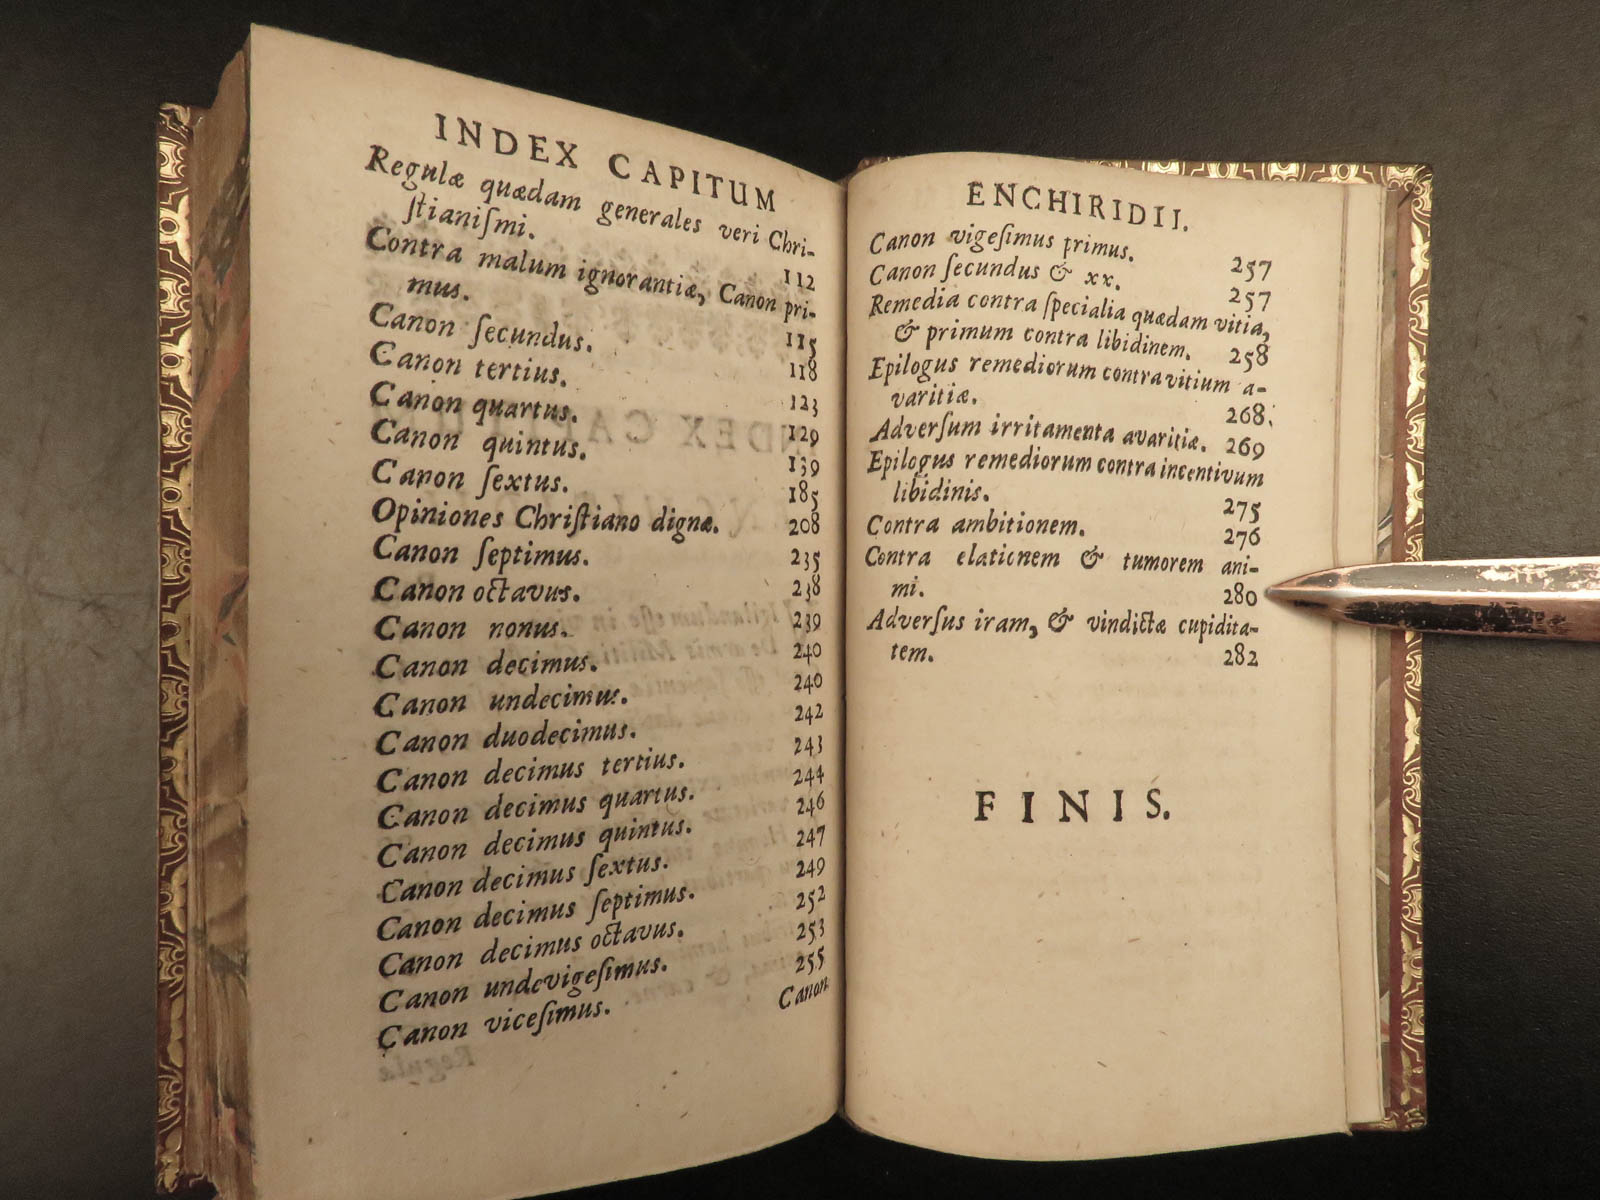 INDEX CAPITUM
Regulæ quædam generales veri Chri-
ſtianiſmi. 112
Contra malum ignorantiæ, Canon pri-
mus. 115
Canon ſecundus. 118
Canon tertius. 123
Canon quartus. 129
Canon quintus. 139
Canon ſextus. 185
Opiniones Chriſtiano dignæ. 208
Canon ſeptimus. 235
Canon octavus. 238
Canon nonus. 239
Canon decimus. 240
Canon undecimus. 240
Canon duodecimus. 242
Canon decimus tertius. 243
Canon decimus quartus. 244
Canon decimus quintus. 246
Canon decimus ſextus. 247
Canon decimus ſeptimus. 249
Canon decimus octavus. 252
Canon undevigeſimus. 253
Canon viceſimus. 255
Canon
ENCHIRIDII.
Canon vigeſimus primus. 257
Canon ſecundus & xx. 257
Remedia contra ſpecialia quædam vitia,
& primum contra libidinem. 258
Epilogus remediorum contra vitium a-
varitiæ. 268.
Adverſum irritamenta avaritiæ. 269
Epilogus remediorum contra incentivum
libidinis. 275
Contra ambitionem. 276
Contra elationem & tumorem ani-
mi. 280
Adverſus iram, & vindictæ cupidita-
tem. 282
FINIS.